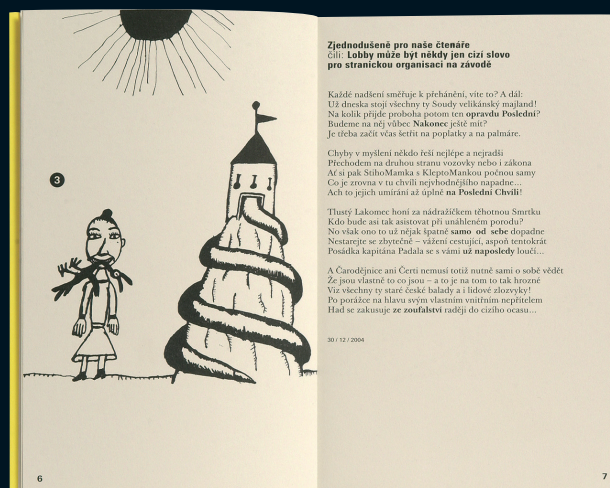 3
6
Zjednodušeně pro naše čtenáře
čili: Lobby může být někdy jen cizí slovo
pro stranickou organisaci na závodě
Každé nadšení směřuje k přehánění, víte to? A dál:
Už dneska stojí všechny ty Soudy velikánský majland!
Na kolik přijde proboha potom ten opravdu Poslední?
Budeme na něj vůbec Nakonec ještě mít?
Je třeba začít včas šetřit na poplatky a na palmáre.
Chyby v myšlení někdo řeší nejlépe a nejradši
Přechodem na druhou stranu vozovky nebo i zákona
Ať si pak StihoMamka s KleptoMankou počnou samy
Co je zrovna v tu chvíli nejvhodnějšího napadne...
Ach to jejich umírání až úplně na Poslední Chvíli!
Tlustý Lakomec honí za nádražíčkem těhotnou Smrtku
Kdo bude asi tak asistovat při unáhleném porodu?
No však ono to už nějak špatně samo od sebe dopadne
Nestarejte se zbytečně – vážení cestující, aspoň tentokrát
Posádka kapitána Padala se s vámi už naposledy loučí...
A Čarodějnice ani Čerti nemusí totiž nutně sami o sobě vědět
Že jsou vlastně to co jsou – a to je na tom to tak hrozné
Viz všechny ty staré české balady a i lidové zlozvyky!
Po porážce na hlavu svým vlastním vnitřním nepřítelem
Had se zakusuje ze zoufalství raději do cizího ocasu...
30 / 12 / 2004
7